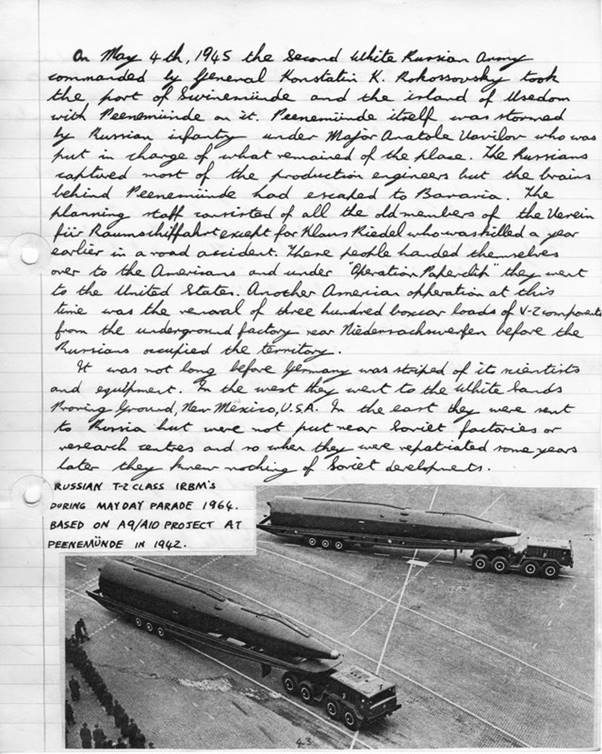 On May 4th, 1945 the Second White Russian Army
commanded by General Konstatin K. Rokossovsky took
the port of Swinemünde and the island of Usedom
with Peenemünde on it. Peenemünde itself was stormed
by Russian infantry under Major Anatole Vavilov who was
put in charge of what remained of the place. The Russians
captured most of the production engineers but the brains
behind Peenemünde had escaped to Bavaria. The
planning staff consisted of all the old members of the Verein
für Raumschiffahrt except for Klaus Riedel who was killed a year
earlier in a road accident. These people handed themselves
over to the Americans and under "Operation Paperclip" they went
to the United States. Another American opperation at this
time was the removal of three hundred boxcar loads of V-2 components
from the underground factory near Niedersachswerfen before the
Russians occupied the territory.
It was not long before Germany was striped of its scientists
and equipment. In the west they went to the White Sands
Proving Ground, New Mexico, U.S.A. In the east they were sent
to Russia but were not put near Soviet factories or
research centres and so when they were repatriated some years
later they knew nothing of Soviet developments.
RUSSIAN T-2 CLASS IRBM'S
DURING MAYDAY PARADE 1964.
BASED ON A9/A10 PROJECT AT
PEENEMÜNDE IN 1942.
43